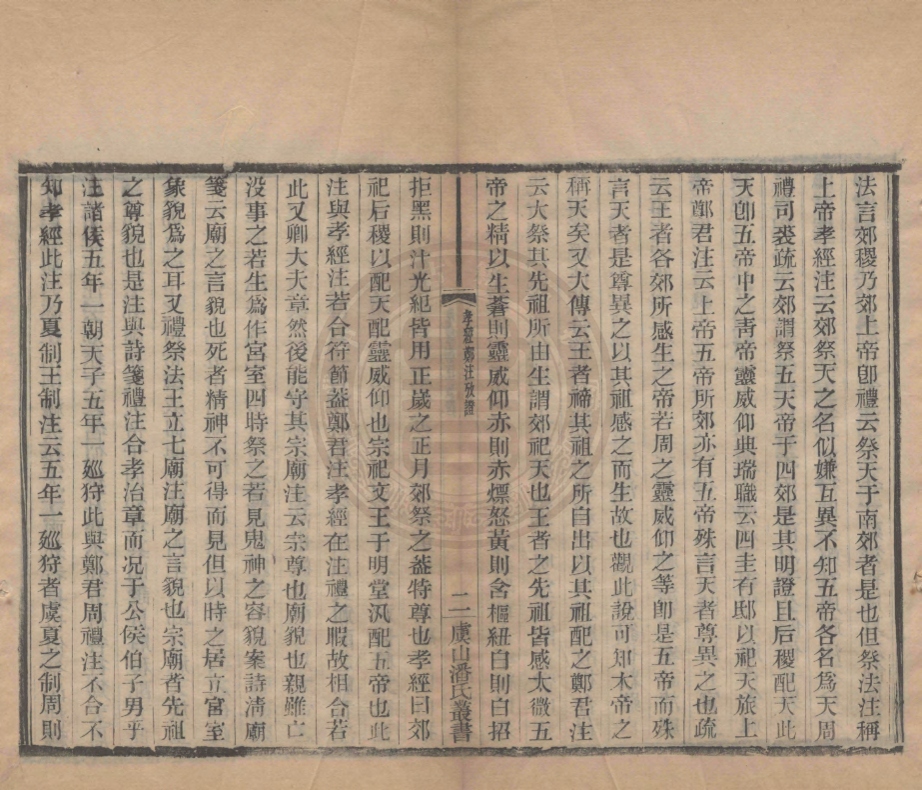 法言郊稷乃郊上帝卽禮云祭天于南郊者是也但祭法注稱
上帝孝經注云郊祭天之名似嫌互異不知五帝各名爲天周
禮司裘疏云郊謂祭五天帝于四郊是其明證且后稷配天此
天卽五帝中之靑帝靈威仰典瑞職云四圭有邸以祀天旅上
帝鄭君注云上帝五帝所郊亦有五帝殊言天者尊異之也疏
云王者各郊所感生之帝若周之靈威仰之等卽是五帝而殊
言天者是尊異之以其祖感之而生故也觀此說可知木帝之
稱天矣又大傳云王者禘其祖之所自出以其祖配之鄭君注
云大祭其先祖所由生謂郊祀天也王者之先祖皆感太微五
帝之精以生蒼則靈威仰赤則赤熛怒黃則含樞紐白則白招
孝經鄭注攷證
二
虞山潘氏叢書
拒黑則汁光紀皆用正歲之正月郊祭之葢特尊也孝經曰郊
祀后稷以配天配靈威仰也宗祀文王于明堂汎配五帝也此
注與孝經注若合符節葢鄭君注孝經在注禮之暇故相合若
此又卿大夫章然後能守其宗廟注云宗尊也廟貌也親雖亡
没事之若生爲作宮室四時祭之若見鬼神之容貌案詩淸廟
箋云廟之言貌也死者精神不可得而見但以時之居立宮室
象貌爲之耳又禮祭法王立七廟注廟之言貌也宗廟者先祖
之尊貌也是注與詩箋禮注合孝治章而况于公侯伯子男乎
注諸侯五年一朝天子五年一廵狩此與鄭君周禮注不合不
知孝經此注乃夏制王制注云五年一廵狩者虞夏之制周則